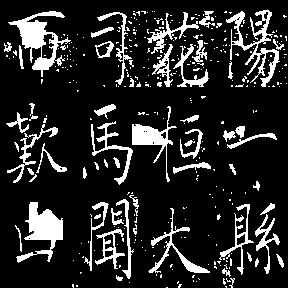 陽一縣
花桓大
司馬聞
而歎曰